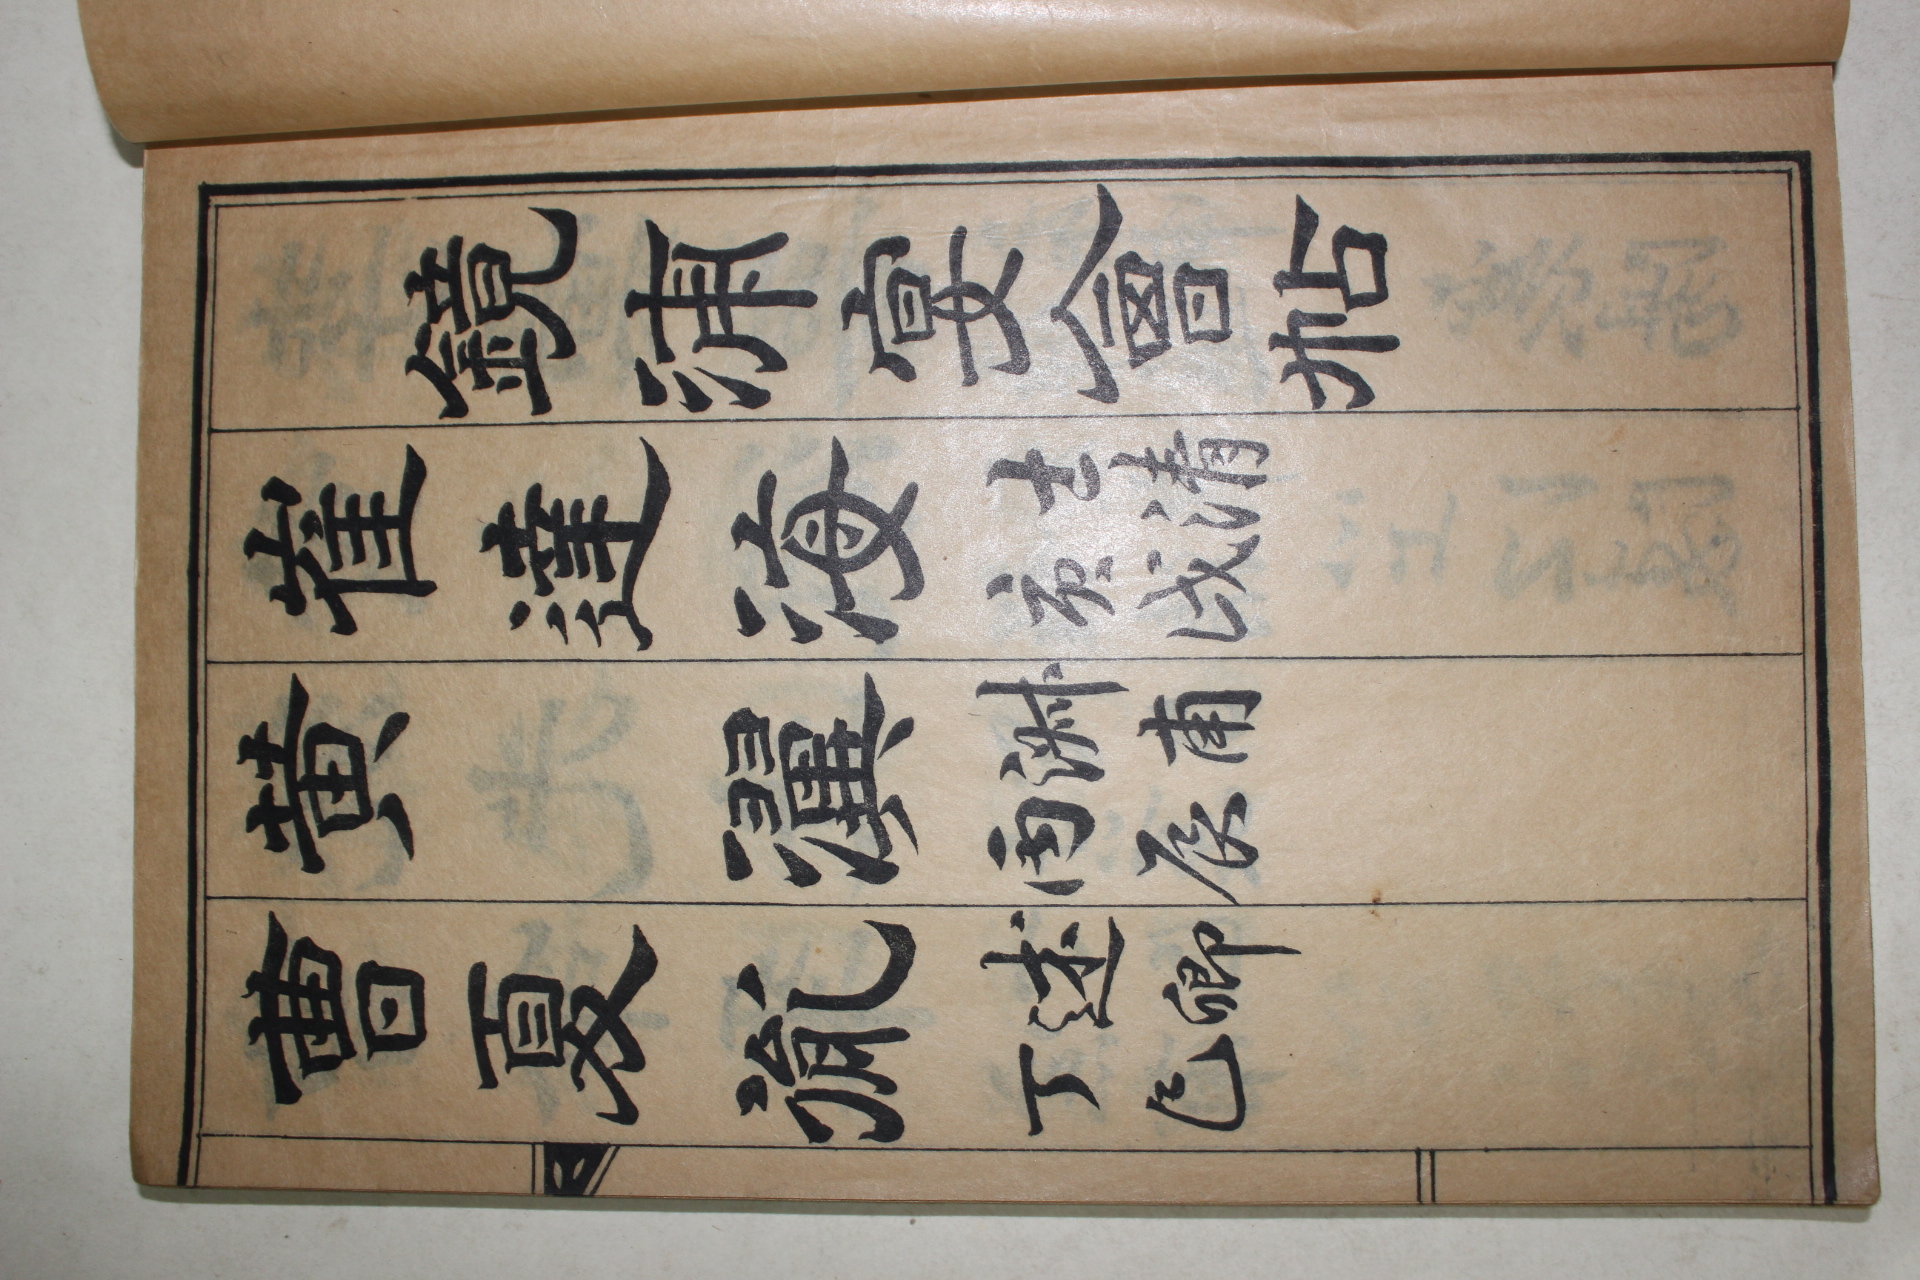 鏡浦宴會帖
崔達海
士清
庚戌
黃瀷
淵甫
丙辰
曹夏胤
述卿
丁巳